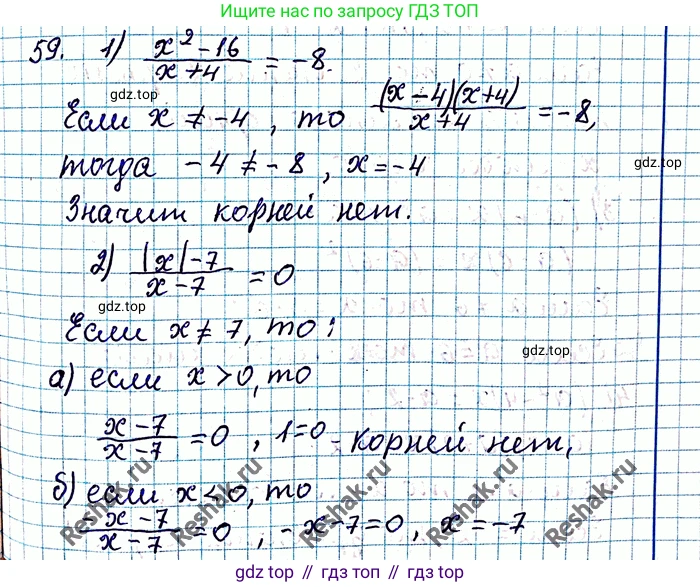 Переходи по запросу ГДЗ ТОП
59. 1) (x² - 16)/(x + 4) = -8.
gdz.top
Если x ≠ -4, то ((x - 4)(x + 4))/(x + 4) = -8,
gdz.top
тогда -4 ≠ -8, x = -4
gdz.top
Значит корней нет.
2) (|x| - 7)/(x - 7) = 0
gdz.top
Если x ≠ 7, то:
gdz.top
а) если x > 0, то
(x - 7)/(x - 7) = 0, 1 = 0 - корней нет,
б) если x < 0, то
(-x - 7)/(x - 7) = 0, -x - 7 = 0, x = -7
Reshak.ru Reshak.ru Reshak.ru Reshak.ru Reshak.ru
gdz top // гдз топ // gdz.top // гдз.топ